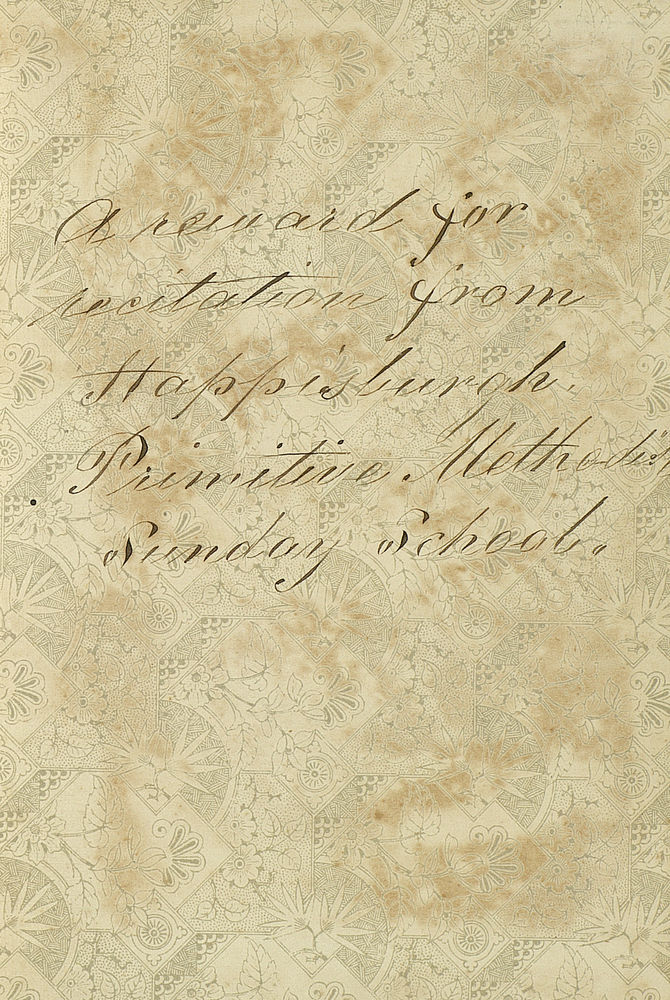 A reward for
recitation from
Happisburgh.
Primitive Methodist
Sunday School.